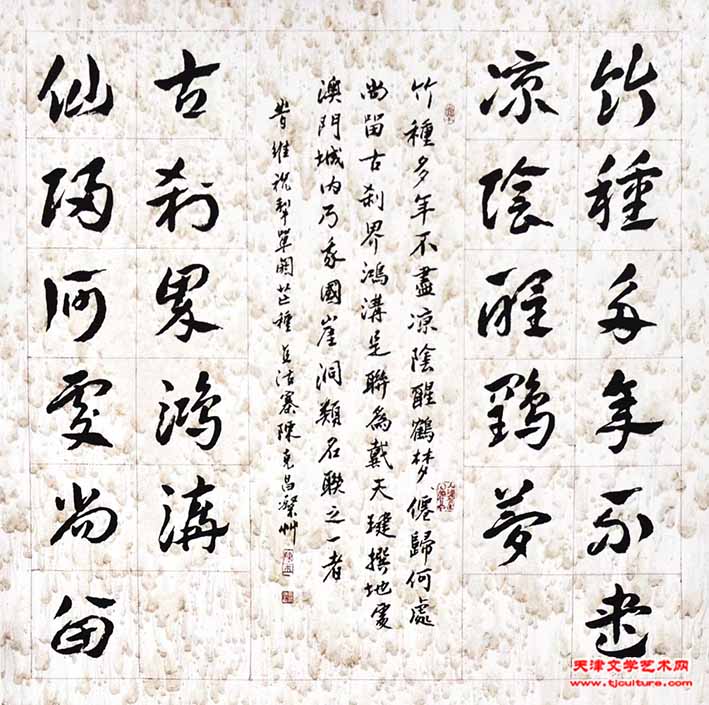 竹種多年不盡
凉陰醒鶴夢
仙歸何處尚留
古刹界鴻溝
竹種多年不盡凉陰醒鶴梦僊歸何處
尚留古刹界鴻溝是聯為戴天撰地處
澳門城内乃我國崖洞類名联之一者
昔維祝犁單阏芒種沽寨陳克昌
天津文学艺术网
www.tjculture.com